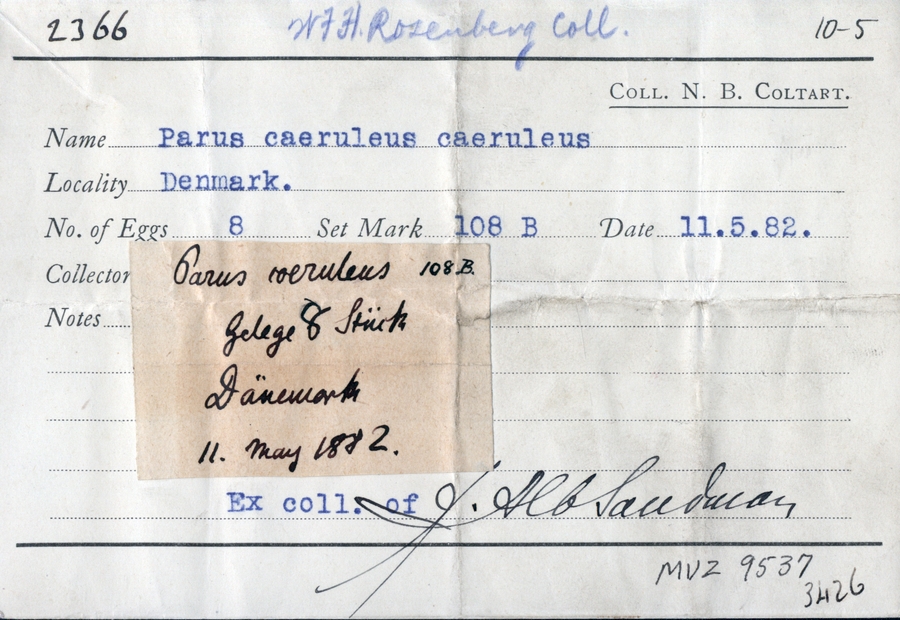 2366 W F H. Rosenberg Coll. 10-5
COLL. N. B. COLTART.
Name Parus caeruleus caeruleus
Locality Denmark.
No. of Eggs 8 Set Mark 108 B Date 11.5.82.
Collector
Notes
Parus coeruleus 108 B.
Gelege 8 Stück
Dänemark
11. May 1882.
Ex coll. of J. Alb Sandman
MVZ 9537
3426